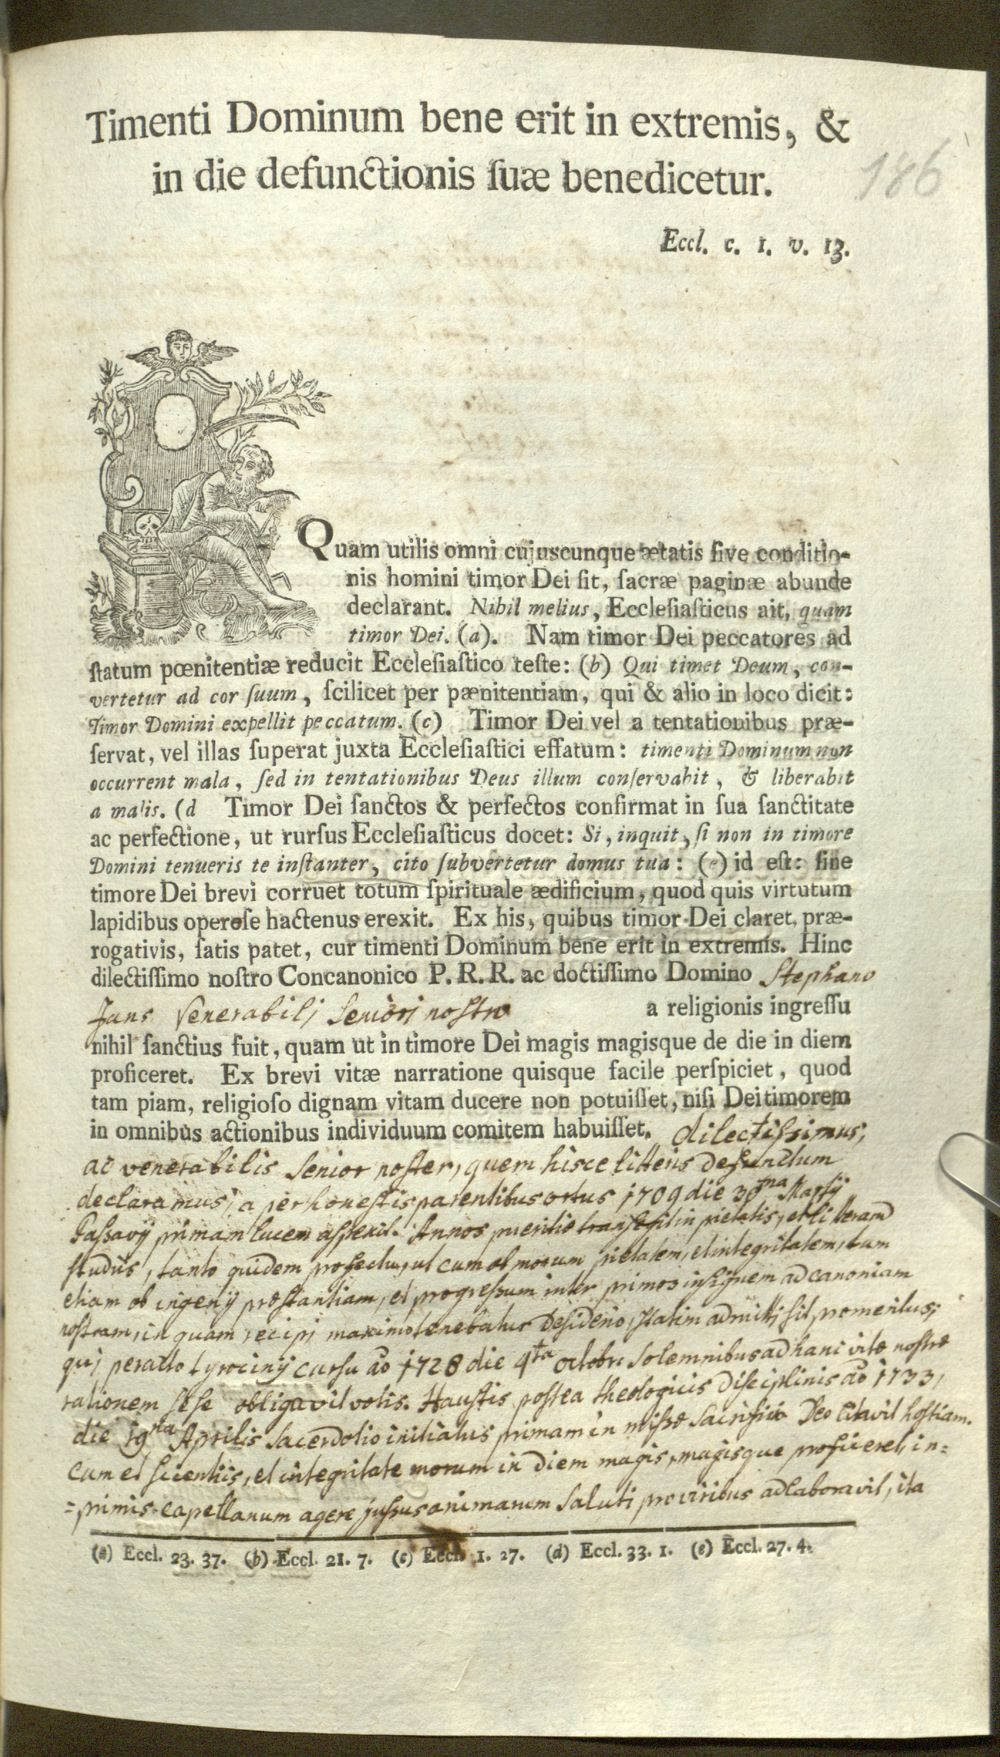 Timenti Dominum bene erit in extremis, &
in die defunctionis ſuæ benedicetur.
186
Eccl. c. 1. v. 13.
Quam utilis omni cujuscunque ætatis ſive conditio-
nis homini timor Dei ſit, ſacræ paginæ abunde
declarant. Nihil melius, Eccleſiaſticus ait, quam
timor Dei. (a). Nam timor Dei peccatores ad
ſtatum pœnitentiæ reducit Eccleſiaſtico teſte: (b) Qui timet Deum, con-
vertetur ad cor ſuum, ſcilicet per pænitentiam, qui & alio in loco dicit:
Timor Domini expellit peccatum. (c) Timor Dei vel a tentationibus præ-
ſervat, vel illas ſuperat juxta Eccleſiaſtici effatum: timenti Dominum non
occurrent mala, ſed in tentationibus Deus illum conſervabit, & liberabit
a malis. (d Timor Dei ſanctos & perfectos confirmat in ſua ſanctitate
ac perfectione, ut rurſus Eccleſiaſticus docet: Si, inquit, ſi non in timore
Domini tenueris te inſtanter, cito ſubvertetur domus tua: (e) id eſt: ſine
timore Dei brevi corruet totum ſpirituale ædificium, quod quis virtutum
lapidibus operoſe hactenus erexit. Ex his, quibus timor Dei claret, præ-
rogativis, ſatis patet, cur timenti Dominum bene erit in extremis. Hinc
dilectiſſimo noſtro Concanonico P. R. R. ac doctiſſimo Domino Stephano
Jans Venerabili Seniori noſtro a religionis ingreſſu
nihil ſanctius fuit, quam ut in timore Dei magis magisque de die in diem
proficeret. Ex brevi vitæ narratione quisque facile perſpiciet, quod
tam piam, religioſo dignam vitam ducere non potuiſſet, niſi Dei timorem
in omnibus actionibus individuum comitem habuiſſet. dilectissimus,
ac venerabilis Senior noſter, quem hisce litteris defunctum
declaramus, a perhoneſtis parentibus ortus 1709 die 30ma Martij
Paſsavij primam lucem aspexit. Annos pueritiæ transegit in pietatis, et litterarum
ſtudiis, tanto quidem profectu, ut cum ob morum pietatem, et integritatem, tum
etiam ob ingenij præſtantiam, et progreſsum inter primos inſignem ad canoniam
noſtram, in quam recipi maximo tenebatur deſiderio, ſtatim admitti ſit promeritus;
qui peracto tyrocinij curſu aō 1728 die 4ta octobr. Solemnibus ad hanc vitæ noſtræ
rationem ſeſe obligavit votis. Hauſtis poſtea theologicis disciplinis aō 1733,
die 19ta Aprilis Sacerdotio initiatus primam in miſsæ Sacrificio Deo litavit hoſtiam.
Cum et ſcientiis, et integritate morum in diem magis, magisque proficeret, in=
=primis capellanum agere juſsus animarum Saluti pro viribus adlaboravit, ita
(a) Eccl. 23. 37. (b) Eccl. 21. 7. (c) Eccl. 1. 27. (d) Eccl. 33. 1. (e) Eccl. 27. 4.